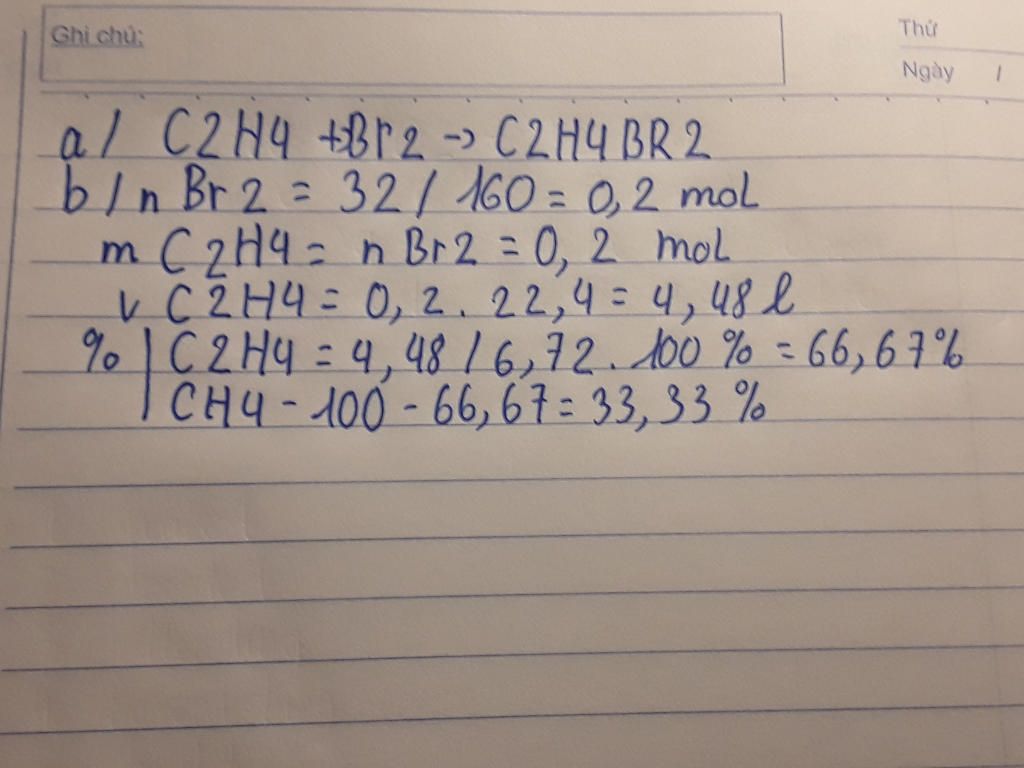 Ghi chú:
Thứ
Ngày /
a/ C2H4 +Br2 -> C2H4BR2
b/ n Br2 = 32 / 160 = 0,2 mol
m C2H4 = n Br2 = 0, 2 mol
v C2H4 = 0, 2. 22, 4 = 4, 48 l
% | C2H4 = 4, 48 / 6, 72. 100 % = 66, 67%
| CH4 - 100 - 66, 67 = 33, 33 %